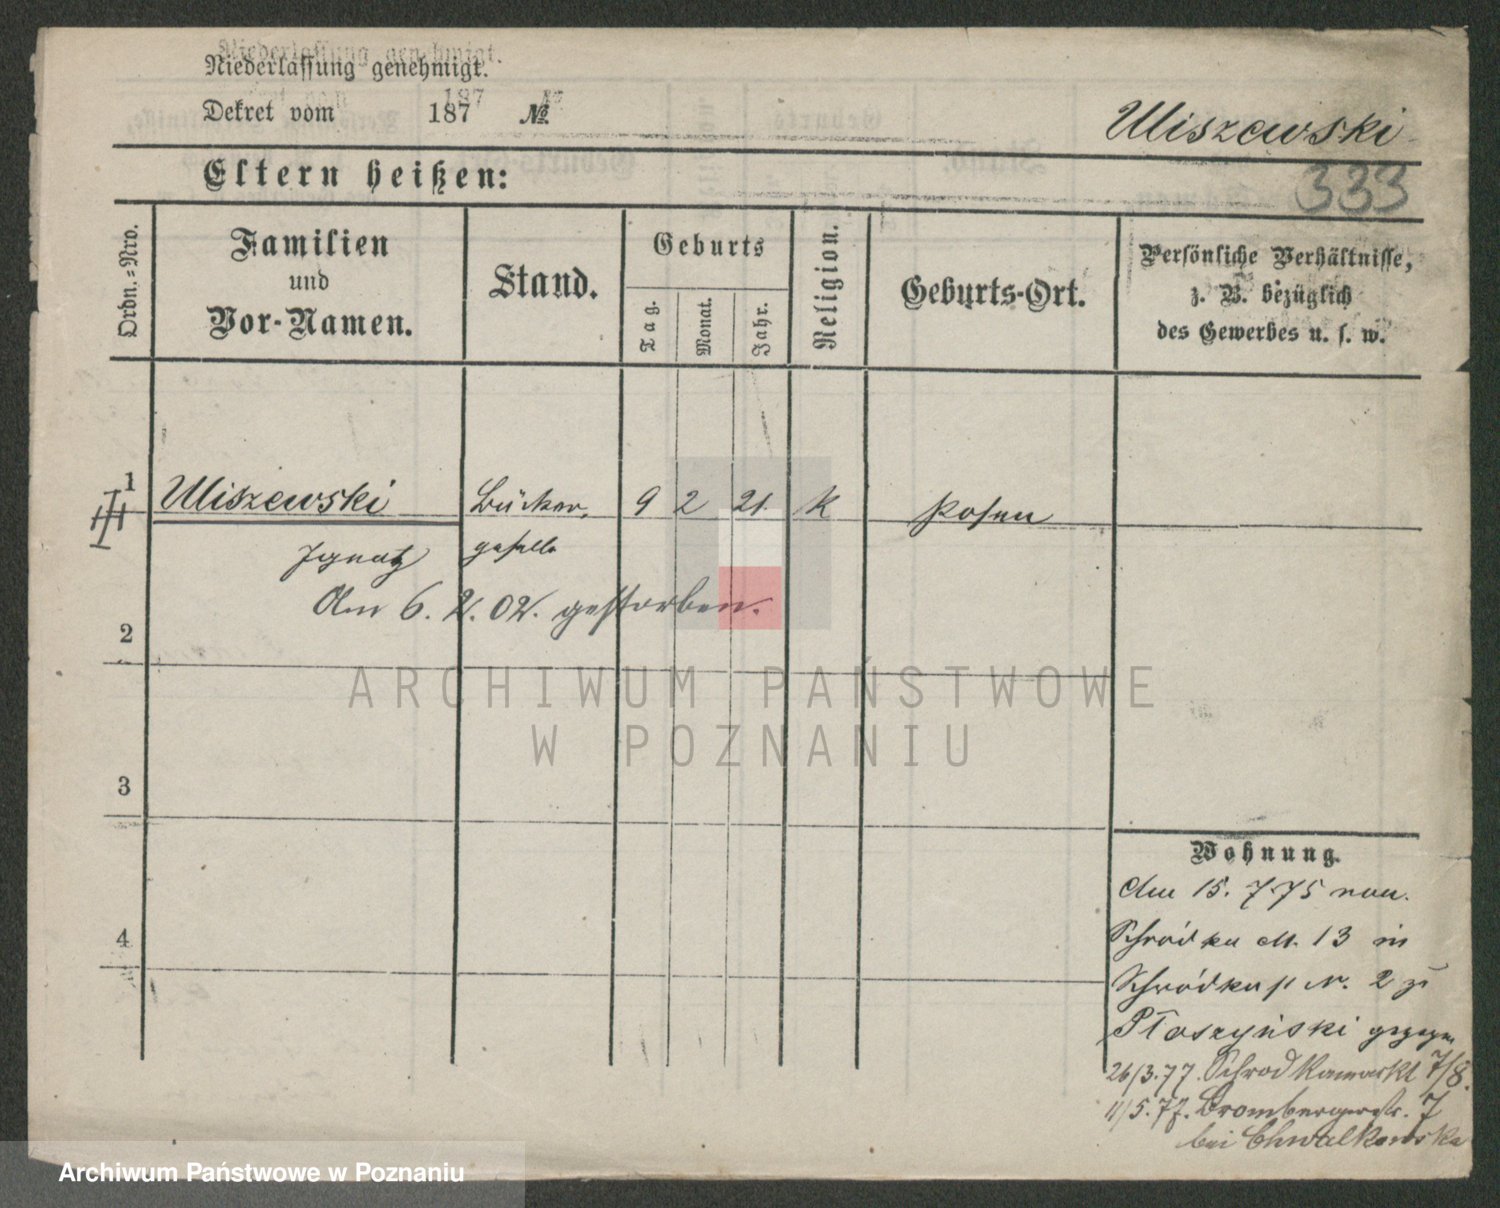 Niederlassung genehmigt.
Dekret vom 187 №
Uliszewski
Eltern heißen:
333
Ordn.=Nro.
Familien
und
Vor-Namen.
Stand.
Geburts
Tag.
Monat.
Jahr.
Religion.
Geburts-Ort.
Persönliche Verhältnisse,
z. B. bezüglich
des Gewerbes u. s. w.
1 Uliszewski Bäcker, 9 2 21. K Posen
Ignatz geselle
Am 6. 2. 02. gestorben.
2
ARCHIWUM PAŃSTWOWE
W POZNANIU
3
4
Wohnung.
Am 15. 7. 75 von
Schrodka M. 13 in
N. 2 zu
Płoszyński gezogen
26/3.77. Schrodkamarkt 7/8.
11/5.77. Brombergerstr. 7
bei Chwalkowska
Archiwum Państwowe w Poznaniu